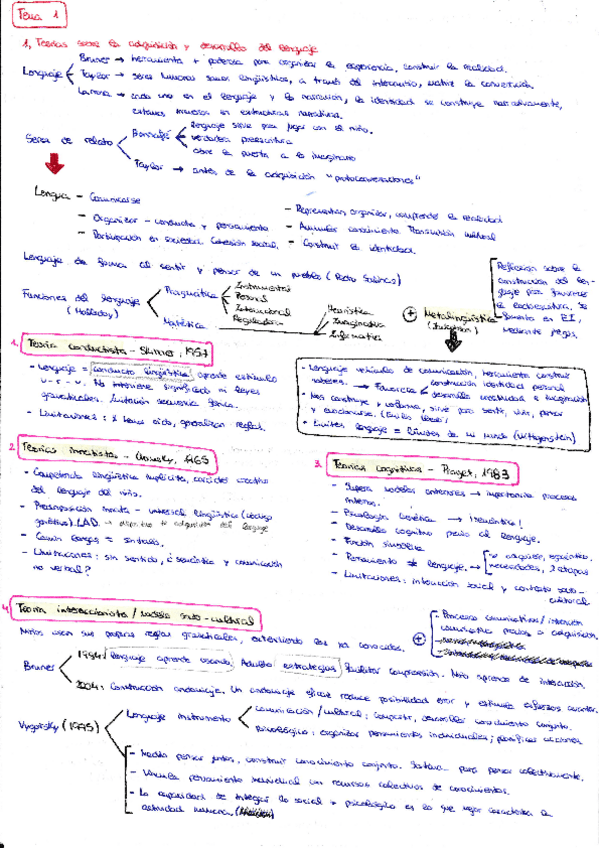 Tema 1
1, Teorías sobre la adquisición y desarrollo del lenguaje
Lenguaje
Bruner → herramienta + potente para organizar la experiencia, construir la realidad.
Taylor → seres humanos somos lingüísticos, a través del
Larrosa → cada uno en el lenguaje y la narración, la identidad se construye narrativamente,
estamos inmersos en estructuras narrativas.
Bonnafé
lenguaje sirve para jugar con el niño.
abre la puerta a lo imaginario
Taylor → antes de la adquisición "protoconversaciones"
Lengua - Comunicarse
- Organizar - conducta y pensamiento
- Participación en sociedad. Cohesión social.
- Representar, organizar, comprender la realidad
- Acumular conocimiento. Transmisión cultural
- Construir la identidad.
Lenguaje da forma al sentir y pensar de un pueblo (Pedro Salinas)
Funciones del lenguaje
(Halliday)
Pragmática
Instrumental
Personal
Interaccional
Reguladora
Matética
Heurística
Imaginativa
Informativa
+ Metalingüística
(Jakobson)
Reflexión sobre la
construcción del len-
guaje para favorecer
la
en EI,
mediante juegos.
- Lenguaje vehículo de comunicación, herramienta construir
saberes. → Favorecer
construcción identidad personal
desarrollo creatividad e imaginación
- Nos construye y conforma, sirve para sentir, vivir, pensar
y (Emilio Lledó)
- Límites lenguaje = Límites de mi mundo (Wittgenstein)
1. Teoría conductista - Skinner, 1957
- Lenguaje = conducta lingüística, aprende estímulo
No interviene significado ni leyes
gramaticales. Imitación
- Limitaciones:
2. Teorías innatistas - Chomsky, 1965
- Competencia lingüística implícita, carácter creativo
del lenguaje del niño.
- Predisposición innata - universal lingüística (código
genético). LAD → dispositivo de adquisición del lenguaje
- Común lenguas = sintaxis.
- Limitaciones: sin sentido, ¿semántica y comunicación
no verbal?
3. Teorías cognitivas - Piaget, 1983
- Supera modelos anteriores → importancia procesos
internos.
- Psicología Genética →
- Desarrollo cognitivo previo al lenguaje.
- Función simbólica
- Pensamiento → lenguaje.
necesidades, 2 etapas
- Limitaciones: interacción social y contexto socio-
cultural
4. Teoría interaccionista / modelo socio-cultural
Niños usan sus propias reglas gramaticales, extendiendo las ya conocidas.
+ - Procesos comunicativos / intención
comunicativa previos a adquisición.
Bruner
lenguaje aprende usando. Adultos estrategias facilitar comprensión. Niño aprende en interacción.
2004: Construcción andamiaje. Un andamiaje eficaz reduce posibilidad error y
Vygotsky (1995)
Lenguaje instrumento
comunicación / cultural: compartir, desarrollar conocimiento conjunto.
psicológico: organizar pensamientos individuales; planificar acciones
- Medio pensar juntos, construir conocimiento conjunto. para pensar colectivamente.
- Vincula pensamiento individual con recursos colectivos de conocimientos.
- La capacidad de integrar lo social + psicológico es lo que mejor caracteriza la
actividad humana.